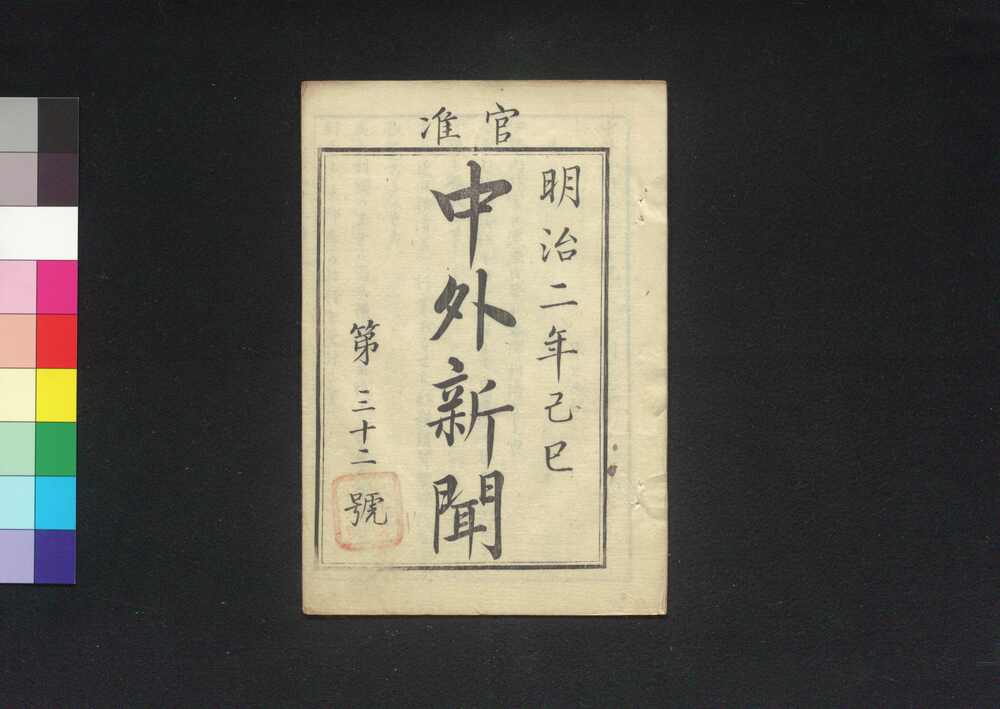 官准
明治二年己巳
中外新聞
第三十二號